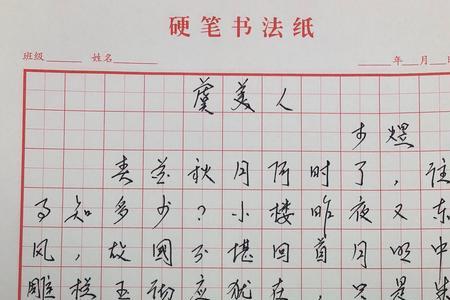 硬笔书法纸
班级 姓名 年 月 日
虞美人
李煜
春花秋月何时了，往
事知多少？小楼昨夜又东
风，故國不堪回首月明中
雕栏玉砌应犹在 只是朱